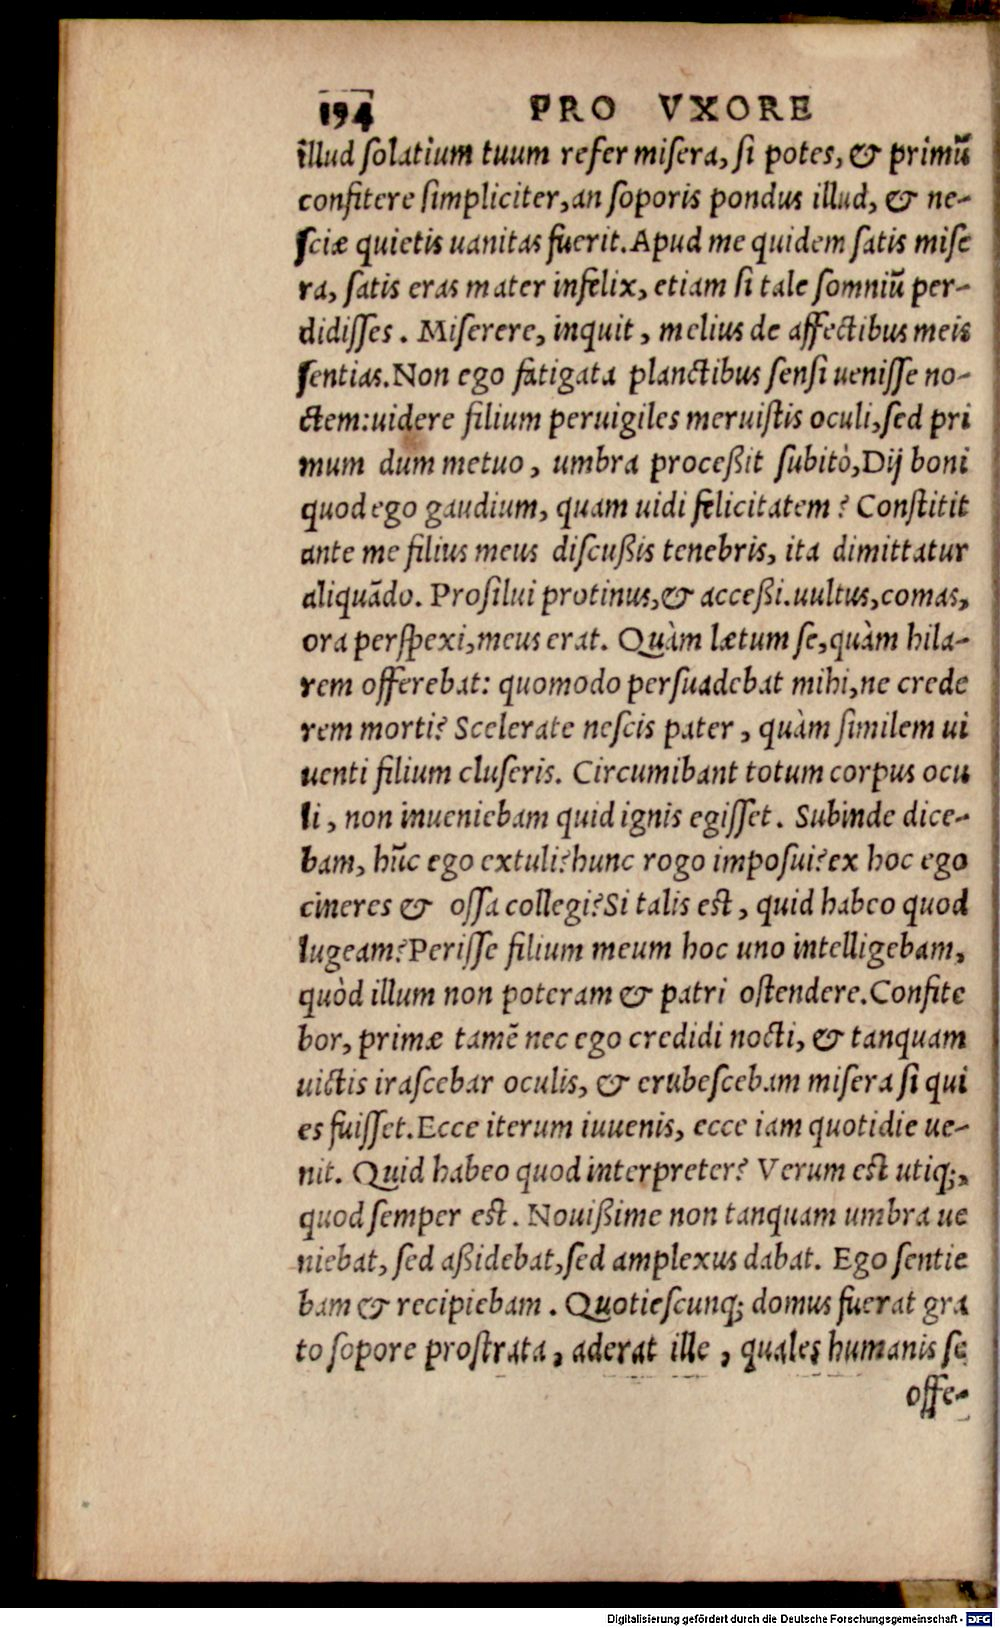 194 PRO VXORE
illud ſolatium tuum refer miſera, ſi potes, & primũ
confitere ſimpliciter, an ſoporis pondus illud, & ne-
ſciæ quietis uanitas fuerit. Apud me quidem ſatis miſe
ra, ſatis eras mater infelix, etiam ſi tale ſomniũ per-
didiſſes. Miſerere, inquit, melius de affectibus meis
ſentias. Non ego fatigata planctibus ſenſi ueniſſe no-
ctem: uidere filium peruigiles meruiſtis oculi, ſed pri
mum dum metuo, umbra proceßit ſubitò, Dij boni
quod ego gaudium, quam uidi felicitatem? Conſtitit
ante me filius meus diſcußis tenebris, ita dimittatur
aliquãdo. Proſilui protinus, & acceßi. uultus, comas,
ora perſpexi, meus erat. Quàm lætum ſe, quàm hila-
rem offerebat: quomodo perſuadebat mihi, ne crede
rem morti? Scelerate neſcis pater, quàm ſimilem ui
uenti filium cluſeris. Circumibant totum corpus ocu
li, non inueniebam quid ignis egiſſet. Subinde dice-
bam, hũc ego extuli? hunc rogo impoſui? ex hoc ego
cineres & oſſa collegi? Si talis eſt, quid habeo quod
lugeam? Periſſe filium meum hoc uno intelligebam,
quòd illum non poteram & patri oſtendere. Confite
bor, primæ tamẽ nec ego credidi nocti, & tanquam
uictis iraſcebar oculis, & erubeſcebam miſera ſi qui
es fuiſſet. Ecce iterum iuuenis, ecce iam quotidie ue-
nit. Quid habeo quod interpreter? Verum eſt utiq;,
quod ſemper eſt. Nouißime non tanquam umbra ue
niebat, ſed aßidebat, ſed amplexus dabat. Ego ſentie
bam & recipiebam. Quotieſcunq; domus fuerat gra
to ſopore proſtrata, aderat ille, quales humanis ſe
offe-
Digitalisierung gefördert durch die Deutsche Forschungsgemeinschaft - DFG